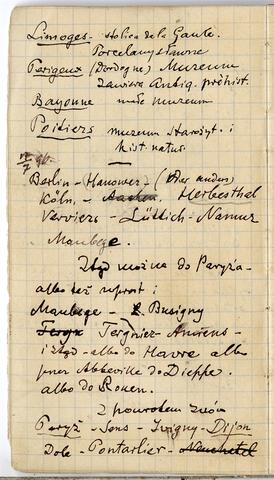 Limoges - stolica dela Gaule.
Porcelany sławne
Perigeux (Dordogne) Muzeum
zawiera Antiq. prehist.
Bayonne małe muzeum
Poitiers muzeum starożyt. i
hist. natur.
Berlin - Hanower -
Köln. - Aachen. Herbesthal
Verviers - Lüttich - Namur
Maubege.
Ztąd można do Paryża -
albo też wprost:
Maubege - Busigny
Tergn Tergniez - Amiens -
i ztąd - albo do Havre albo
przez Abbeville do Dieppe.
albo do Rouen.
Z powrotem znów
Paryż - Sens - Dijon
Dole - Pontarlier - Neuchatel